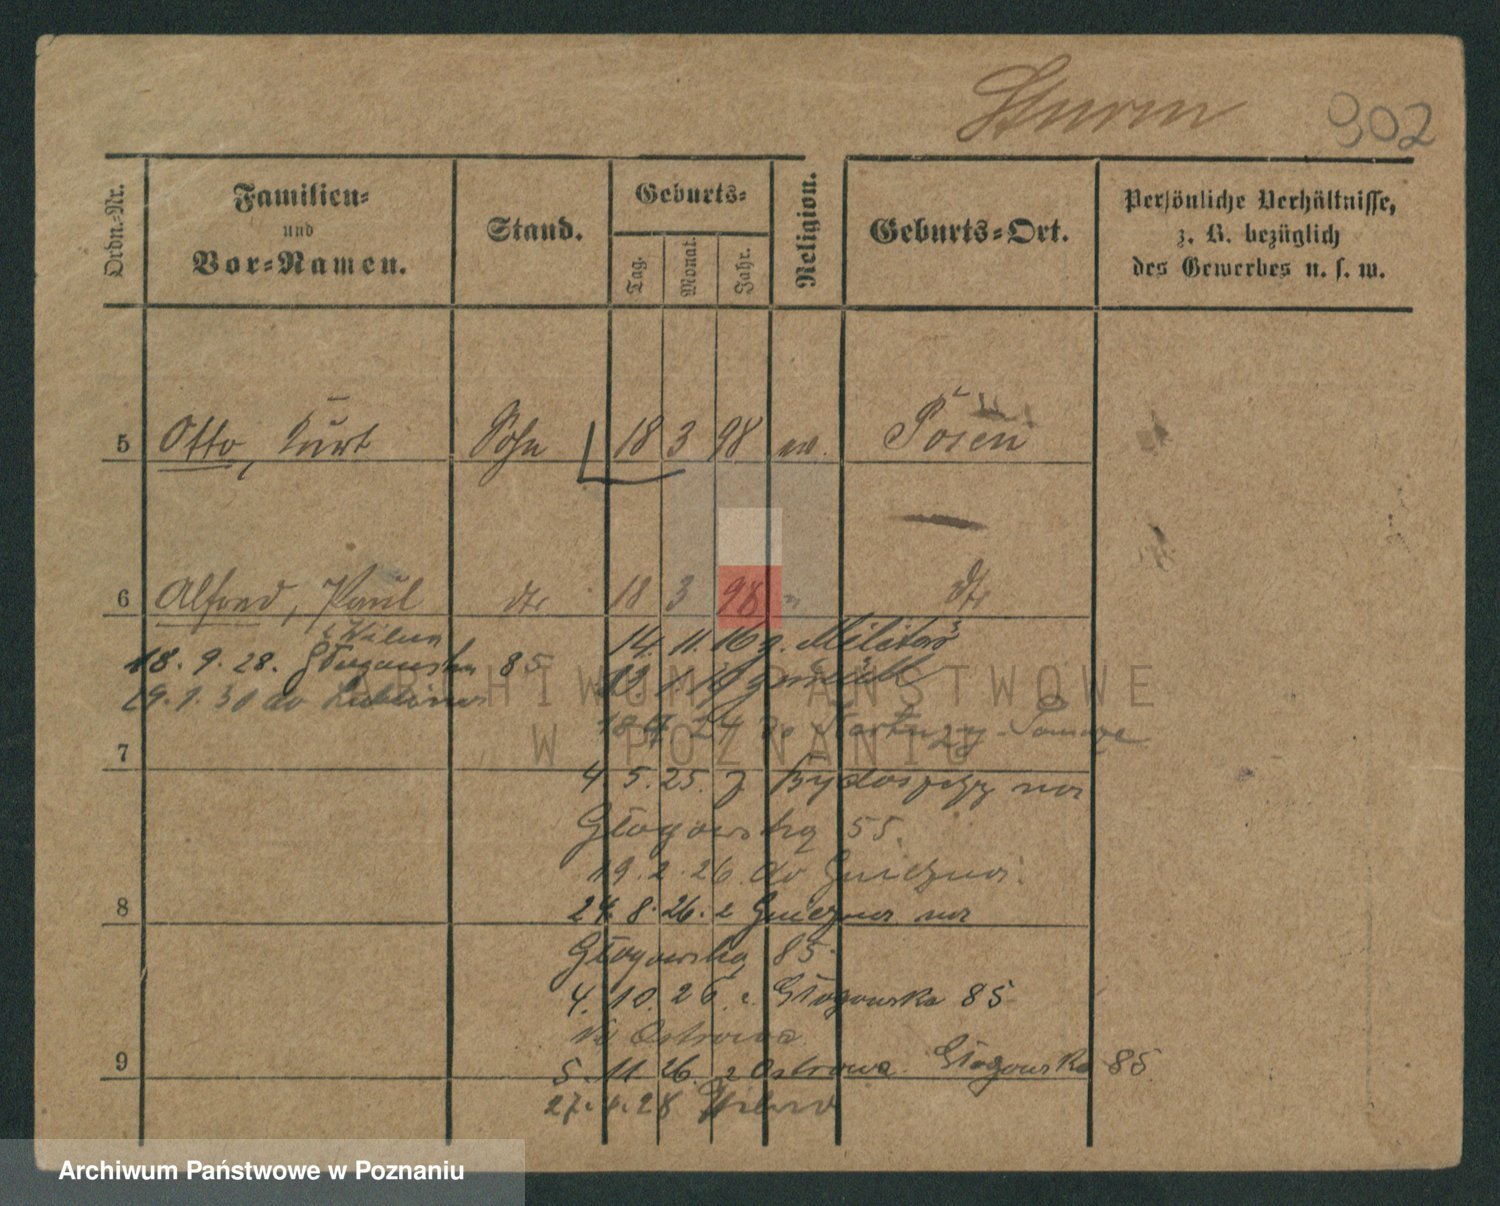 Sturm 902
Ordn.-Nr.
Familien-
und
Vor-Namen.
Stand.
Geburts-
Tag.
Monat.
Jahr.
Religion.
Geburts-Ort.
Persönliche Verhältnisse,
z. B. bezüglich
des Gewerbes u. s. w.
5 Otto, Kurt Sohn 18 3 98 ev. Posen
6 Alfred, Paul dto 18 3 98 " dto
z Wilna
18. 9. 28. Głogowska 85
29. 1. 30 do
14. 11. 16 z. Militär
zurück
24 do Kartuzy
7
4. 5. 25. z Bydgoszczy na
Głogowską 55.
19. 2. 26. do Gniezna.
8
24. 8. 26. z Gniezna na
Głogowską 85.
4. 10. 26. Głogowska 85
do Ostrowa
9
5. 11 26. z Ostrowa Głogowska 85
27. 28 Wilno
ARCHIWUM PAŃSTWOWE
W POZNANIU
Archiwum Państwowe w Poznaniu